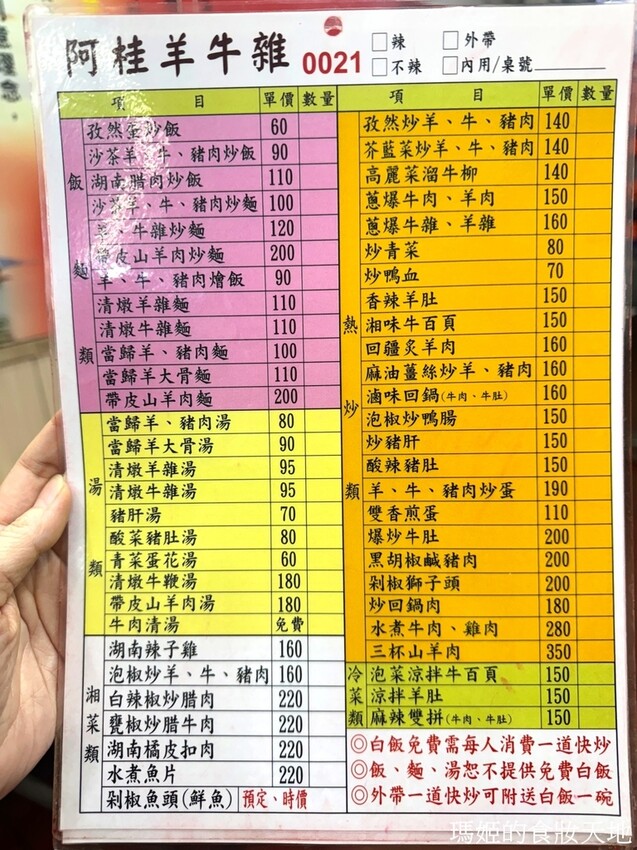 阿桂羊牛雜 0021
□辣 □外帶
□不辣 □內用/桌號
項目 單價 數量
飯麵類
孜然蛋炒飯 60
沙茶羊、牛、豬肉炒飯 90
湖南腊肉炒飯 110
沙茶羊、牛、豬肉炒麵 100
羊、牛雜炒麵 120
帶皮山羊肉炒麵 200
羊、牛、豬肉燴飯 90
清燉羊雜麵 110
清燉牛雜麵 110
當歸羊、豬肉麵 100
當歸羊大骨麵 110
帶皮山羊肉麵 200
湯類
當歸羊、豬肉湯 80
當歸羊大骨湯 90
清燉羊雜湯 95
清燉牛雜湯 95
豬肝湯 70
酸菜豬肚湯 80
青菜蛋花湯 60
清燉牛鞭湯 180
帶皮山羊肉湯 180
牛肉清湯 免費
湘菜類
湖南辣子雞 160
泡椒炒羊、牛、豬肉 160
白辣椒炒腊肉 220
甕椒炒腊牛肉 220
湖南橘皮扣肉 220
水煮魚片 220
剁椒魚頭(鮮魚) 預定、時價
項目 單價 數量
熱炒類
孜然炒羊、牛、豬肉 140
芥藍菜炒羊、牛、豬肉 140
高麗菜溜牛柳 140
蔥爆牛肉、羊肉 150
蔥爆牛雜、羊雜 160
炒青菜 80
炒鴨血 70
香辣羊肚 150
湘味牛百頁 150
回疆炙羊肉 160
麻油薑絲炒羊、豬肉 160
滷味回鍋(牛肉、牛肚) 160
泡椒炒鴨腸 150
炒豬肝 150
酸辣豬肚 150
羊、牛、豬肉炒蛋 190
雙香煎蛋 110
爆炒牛肚 200
黑胡椒鹹豬肉 200
剁椒獅子頭 200
炒回鍋肉 180
水煮牛肉、雞肉 280
三杯山羊肉 350
冷菜類
泡菜涼拌牛百頁 150
涼拌羊肚 150
麻辣雙拼(牛肉、牛肚) 150
◎白飯免費需每人消費一道快炒
◎飯、麵、湯恕不提供免費白飯
◎外帶一道快炒可附送白飯一碗
瑪姬的食妝天地